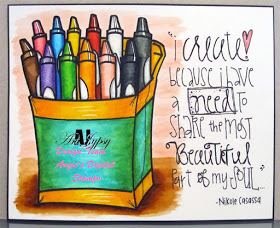 Art Gypsy
Angie's Digital
Stamps
"i create
because i have
a need to
share the most
Beautiful
part of my soul..."
-Nikole Casassa